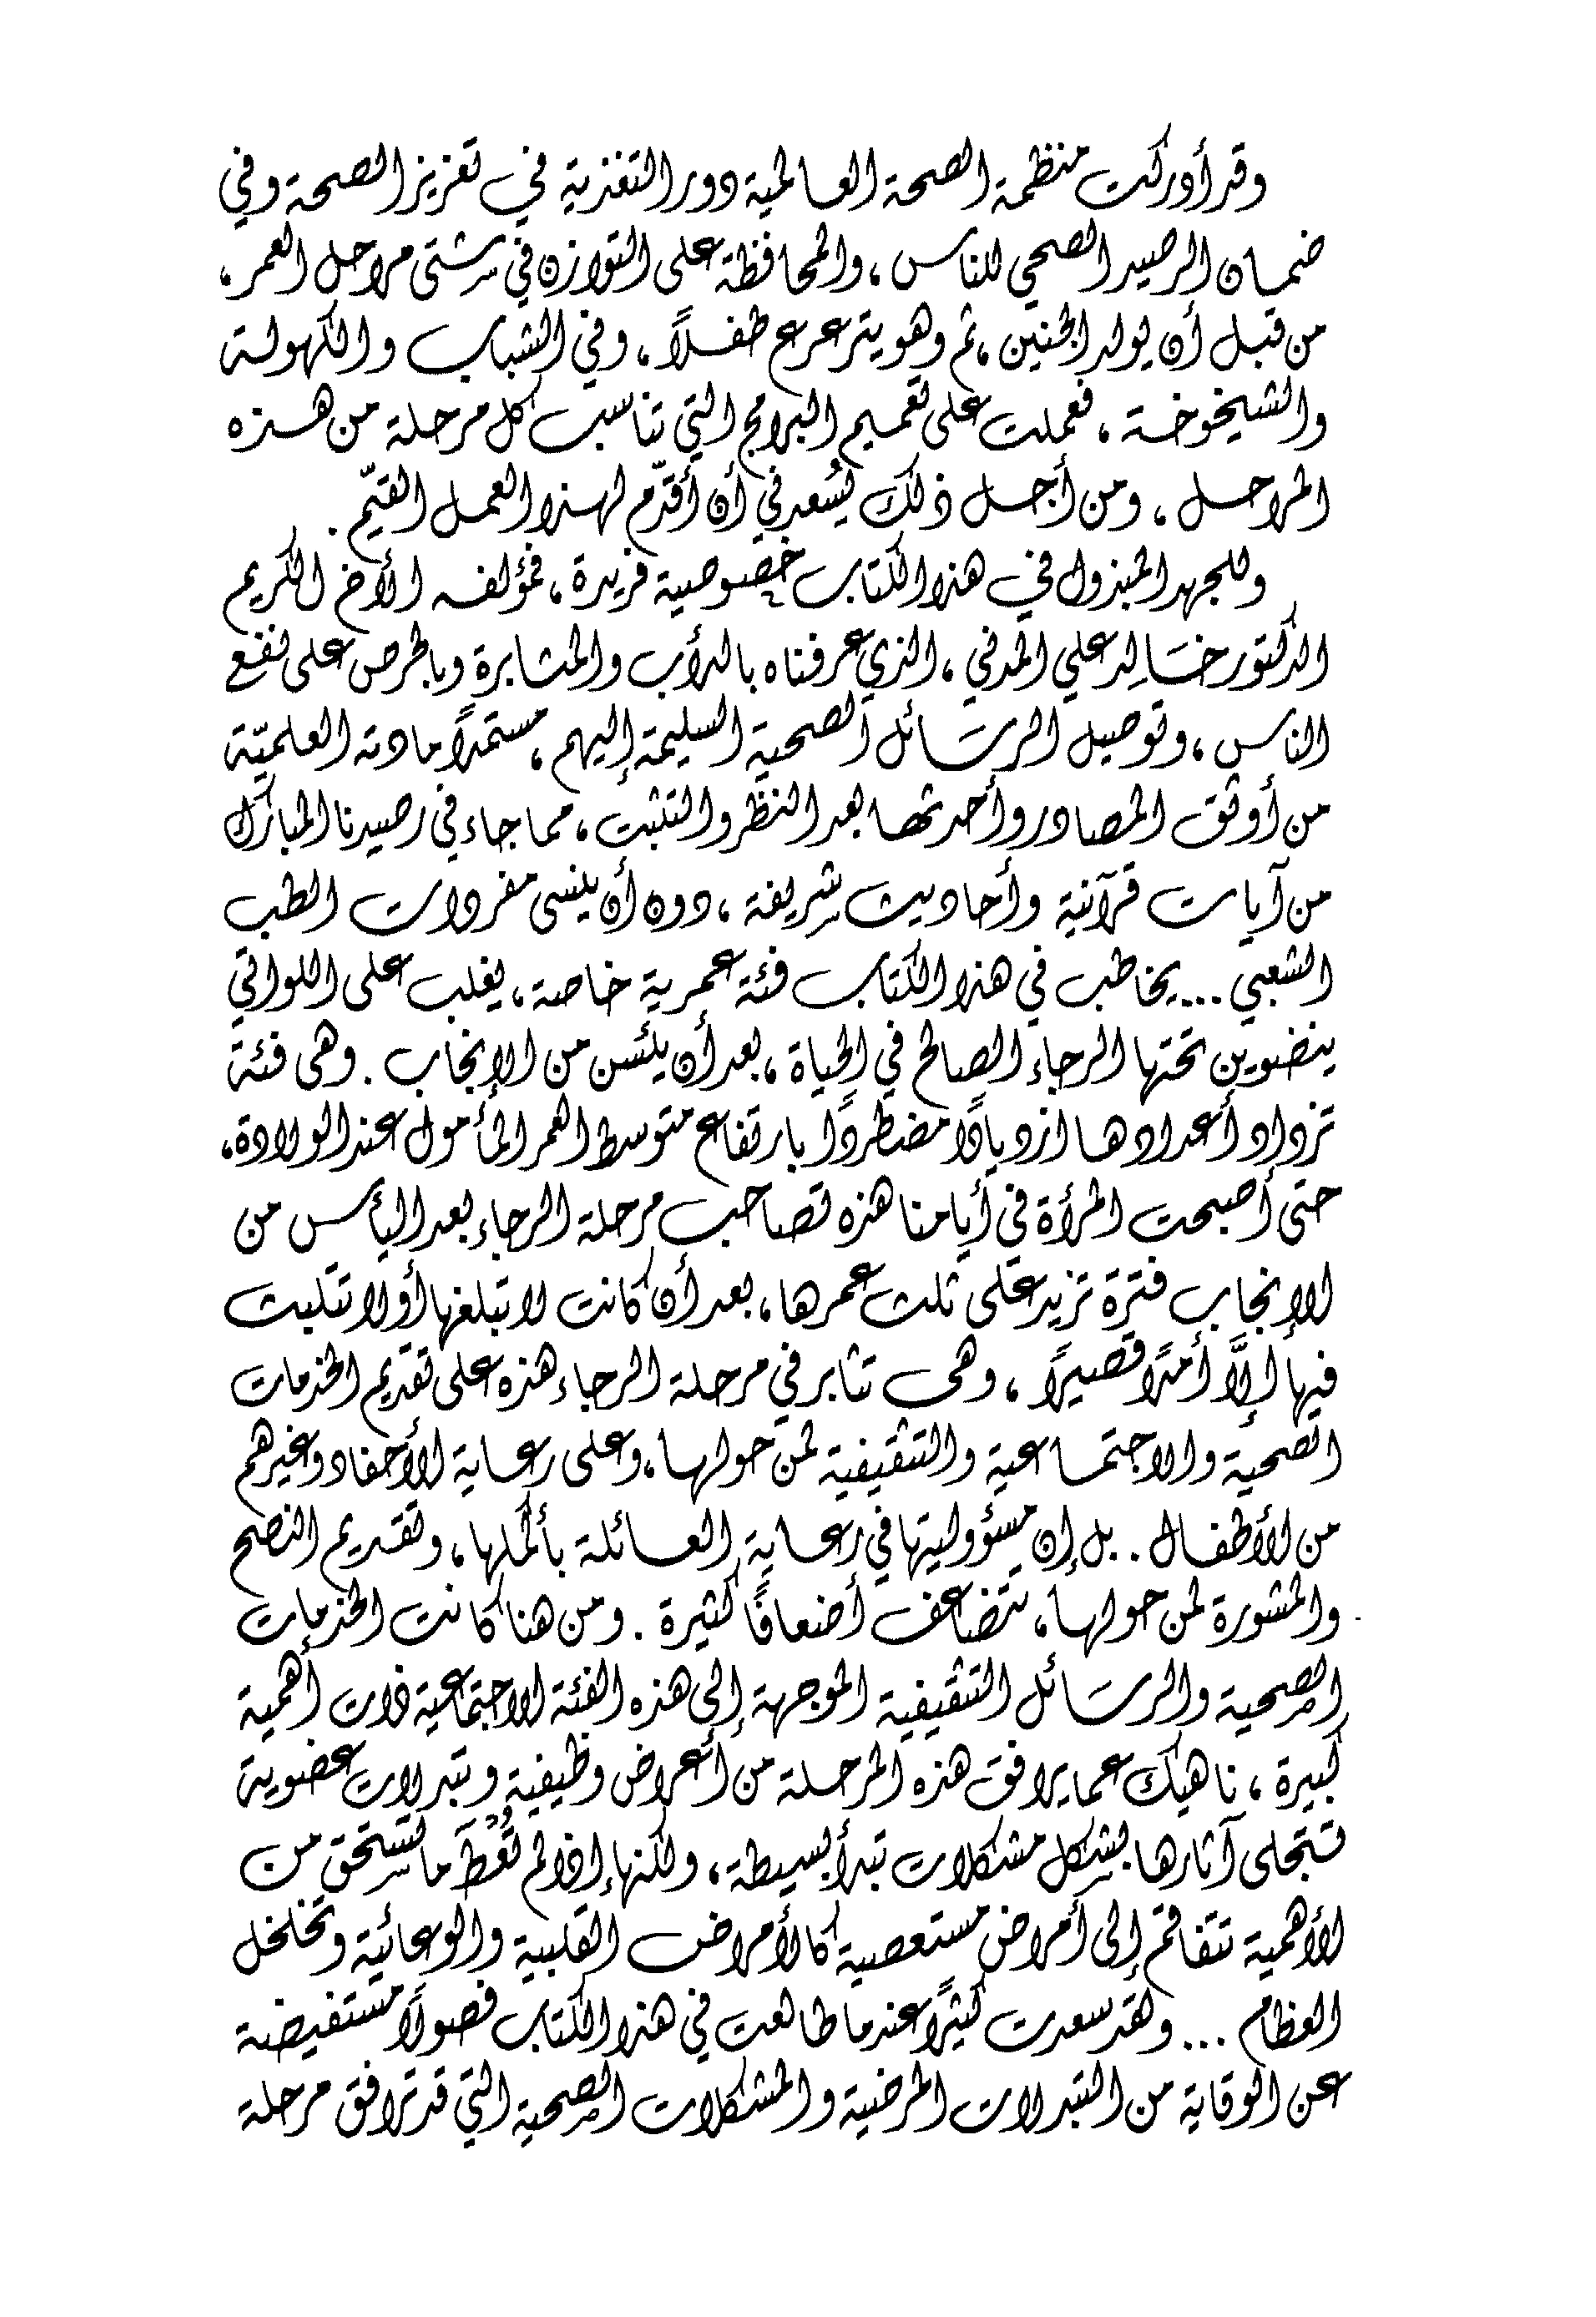 وقد أدركت منظمة الصحة العالمية دور التغذية في تعزيز الصحة وفي
ضمان الرصيد الصحي للناس، والمحافظة على التوازن في شتى مراحل العمر،
من قبل أن يولد الجنين، ثم وهو يترعرع طفلاً، وفي الشباب والكهولة
والشيخوخة، فعملت على تعميم البرامج التي تناسب كل مرحلة من هذه
المراحل، ومن أجل ذلك يُسعدني أن أقدّم لهذا العمل القيّم.
وللجهد المبذول في هذا الكتاب خصوصية فريدة، فمؤلفه الأخ الكريم
الدكتور خَالد علي المدني، الذي عرفناه بالدأب والمثابرة وبالحرص على نفع
الناس، وتوصيل الرسَائل الصحية السليمة إليهم، مستمدًا مادته العلميّة
من أوثق المصادر وأحدثها بعد النظر والتثبت، مما جاء في رصيدنا المبارك
من آيات قرآنية وأحاديث شريفة، دون أن ينسى مفردات الطب
الشعبي ... يخاطب في هذا الكتاب فئة عمرية خاصة، يغلب على اللواتي
ينضوين تحتها الرجاء الصالح في الحياة، بعد أن يئسن من الإنجاب. وهى فئة
تزداد أعدادها ازديادًا مضطردًا بارتفاع متوسط العمر المأمول عند الولادة،
حتى أصبحت المرأة في أيامنا هذه تصاحب مرحلة الرجاء بعد اليأس من
الإنجاب فترة تزيد على ثلث عمرها، بعد أن كانت لا تبلغها أو لا تتلبث
فيها إلاَّ أمدًا قصيرًا، وهى تثابر في مرحلة الرجاء هذه على تقديم الخدمات
الصحية والاجتمَاعية والتثقيفية لمن حولها، وعلى رعاية الأحفاد وغيرهم
من الأطفال.. بل إن مسؤوليتها في رعاية العائلة بأكملها، وتقديم النصح
والمشورة لمن حولها، تتضاعف أضعافًا كثيرة. ومن هنا كانت الخدمات
الصحية والرسَائل التثقيفية الموجهة إلى هذه الفئة الاجتماعية ذات أهمية
كبيرة، ناهيك عما يرافق هذه المرحلة من أعراض وظيفية وتبدلات عضوية
تتجلى آثارها بشكل مشكلات تبدأ بسيطة، ولكنها إذا لم تُعْطَ ما تستحق من
الأهمية تتفاقم إلى أمراض مستعصية كالأمراض القلبية والوعائية وتخلخل
العظام ... ولقد سعدت كثيرًا عندما طالعت في هذا الكتاب فصولاً مستفيضة
عن الوقاية من التبدلات المرضية والمشكلات الصحية التي قد ترافق مرحلة